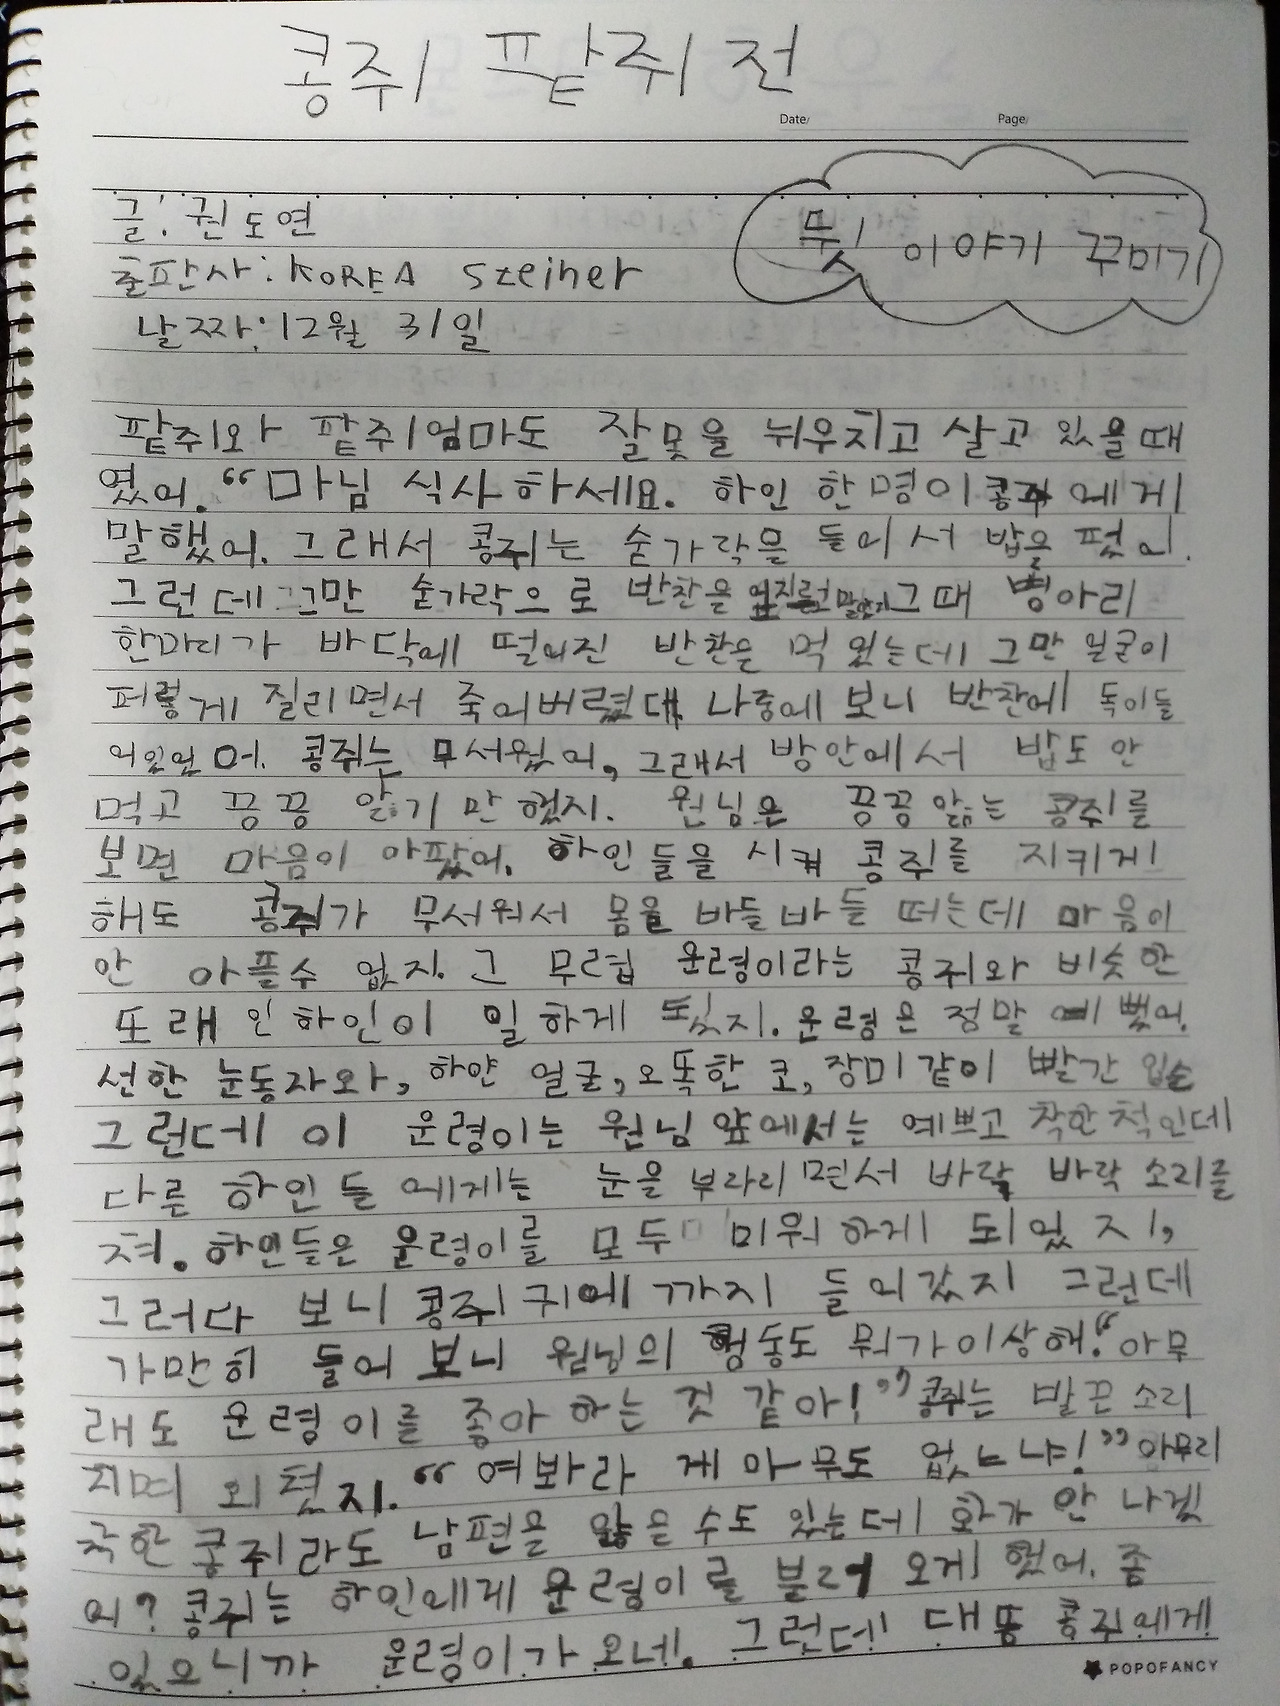 콩쥐 팥쥐 전
Date/ Page/
글: 권도연
뒷 이야기 꾸미기
출판사: KOREA Steiner
날짜: 12월 31일
팥쥐와 팥쥐엄마도 잘못을 뉘우치고 살고 있을때
였어. “마님 식사하세요. 하인 한명이 콩쥐에게
말했어. 그래서 콩쥐는 숟가락을 들어서 밥을 펐어.
그런데 그만 숟가락으로 반찬을 그때 병아리
한마리가 바닥에 떨어진 반찬을 먹었는데 그만 얼굴이
퍼렇게 질리면서 죽어버렸대. 나중에 보니 반찬에 독이들
어있었어. 콩쥐는 무서웠어, 그래서 방안에서 밥도 안
먹고 끙끙 앓기만 했지. 원님은 끙끙 앓는 콩쥐를
보면 마음이 아팠어. 하인들을 시켜 콩쥐를 지키게
해도 콩쥐가 무서워서 몸을 바들바들 떠는데 마음이
안 아플수 없지. 그 무렵 운령이라는 콩쥐와 비슷한
또래 인 하인이 일하게 됬지. 운령은 정말 예뻤어.
선한 눈동자와, 하얀 얼굴, 오똑한 코, 장미같이 빨간 입술
그런데 이 운령이는 원님 앞에서는 예쁘고 착한척인데
다른 하인들에게는 눈을 부라리면서 바락 바락 소리를
쳐. 하인들은 운령이를 모두 미워하게 되었지,
그러다 보니 콩쥐 귀에 까지 들어갔지 그런데
가만히 들어보니 원님의 행동도 뭐가이상해. “아무
래도 운령이를 좋아하는 것 같아!” 콩쥐는 발끈 소리
치며 외쳤지. “여봐라 게 아무도 없느냐!” 아무리
착한 콩쥐라도 남편을 잃을수도 있는데 화가 안 나겠
어? 콩쥐는 하인에게 운령이를 불러 오게 했어. 좀
있으니까 운령이가 오네. 그런데 대뜸 콩쥐에게
POPOFANCY